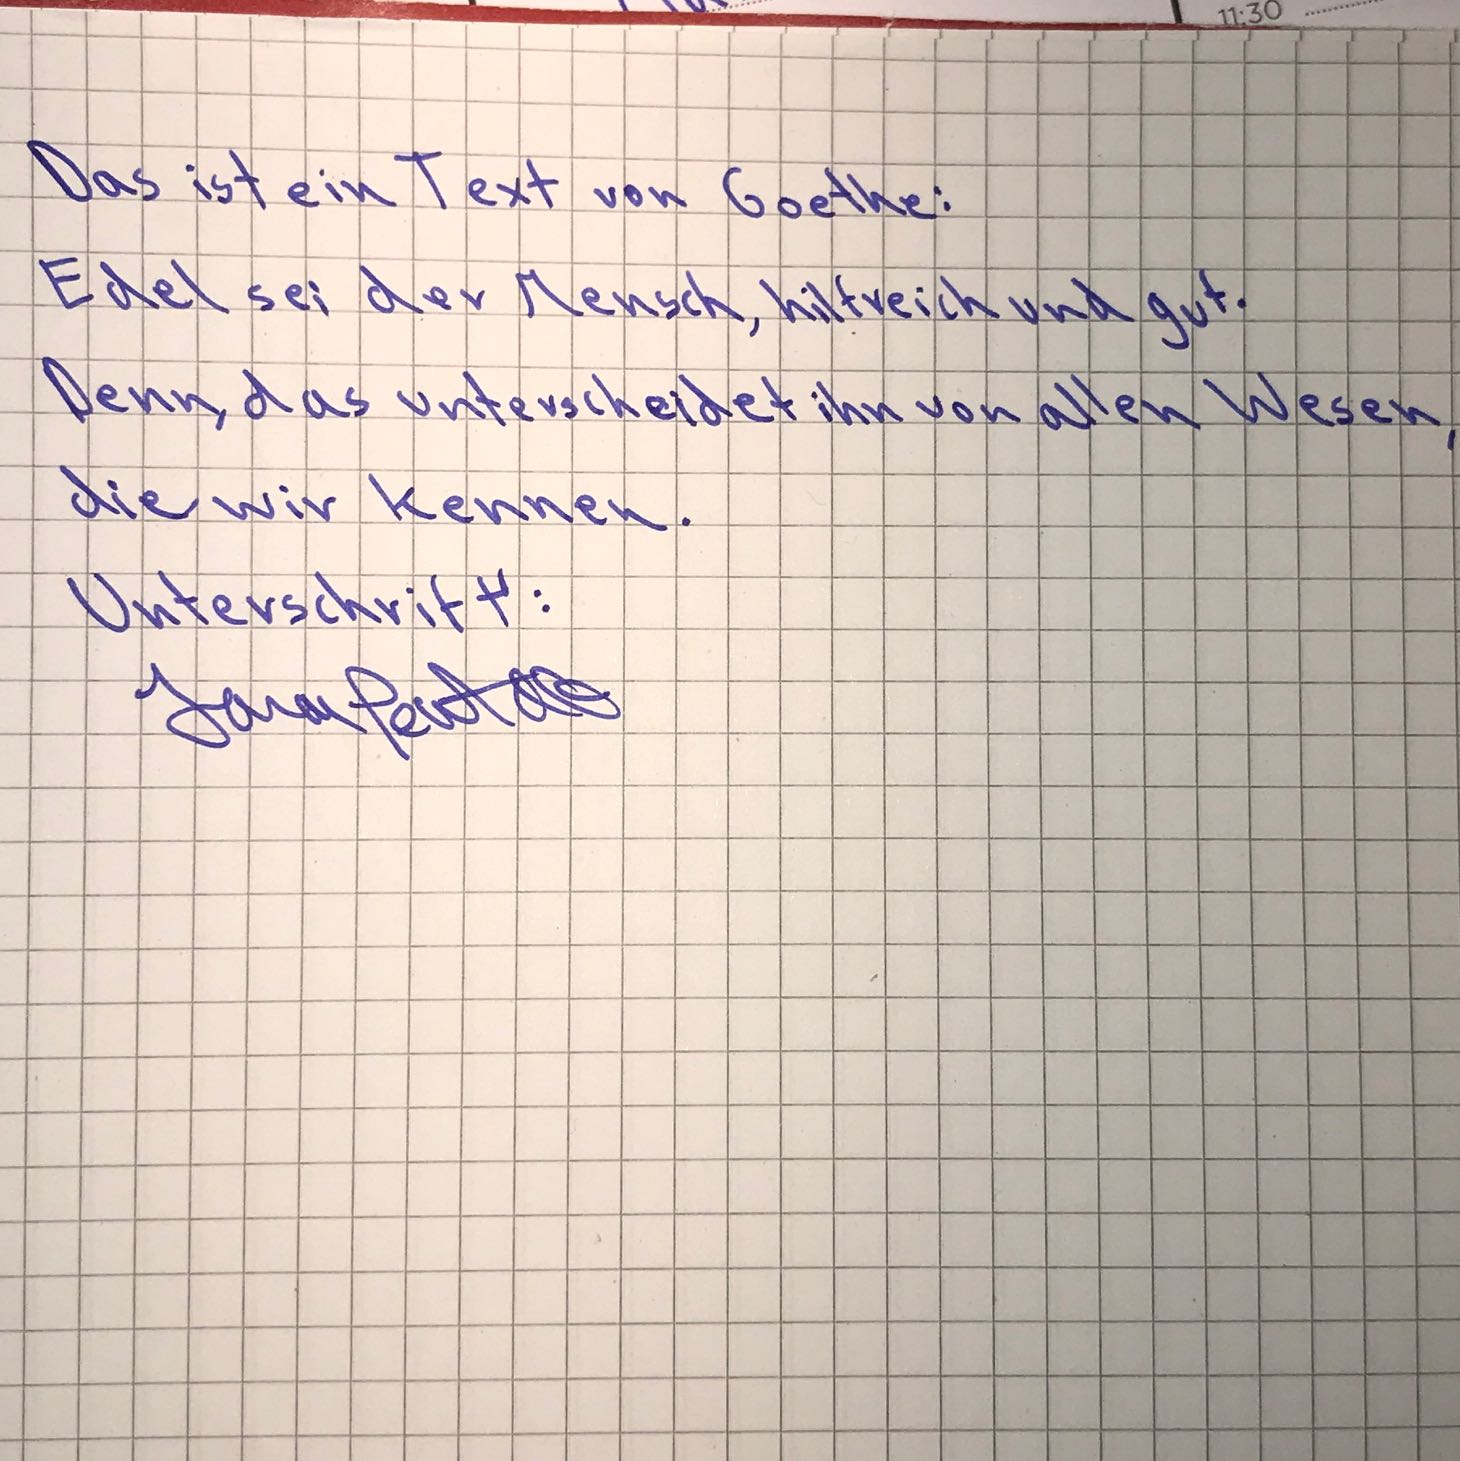 11:30
Das ist ein Text von Goethe:
Edel sei der Mensch, hilfreich und gut.
Denn, das unterscheidet ihn von allen Wesen,
die wir kennen.
Unterschrift: